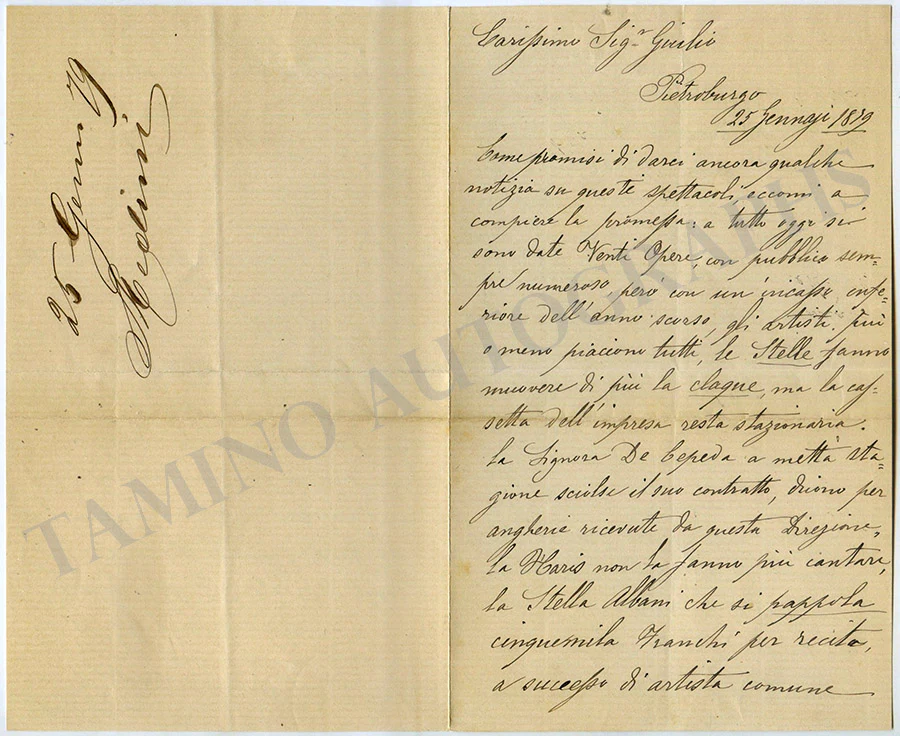 25 Genn. 79
Medini
Carissimo Sigr Giulio
Pietroburgo
25 Gennaji 1879
Come promisi di darci ancora qualche
notizia su questi spettacoli, eccomi a
compiere la promessa: a tutto oggi si
sono date Venti Opere, con pubblico sem=
pre numeroso, però con un'incasso infe=
riore dell'anno scorso, gli artisti, più
o meno piacciono tutti, le Stelle fanno
muovere di più la claque, ma la cas=
setta dell'impresa resta stazionaria.
La Signora De Cepeda a mettà sta=
gione sciolse il suo contratto, dicono per
angherie ricevute da questa Direzione,
la Maris non la fanno più cantare,
la Stella Albani che si pappola
cinquemila Franchi per recita,
a successo di artista comune
TAMINO AUTOGRAPHS